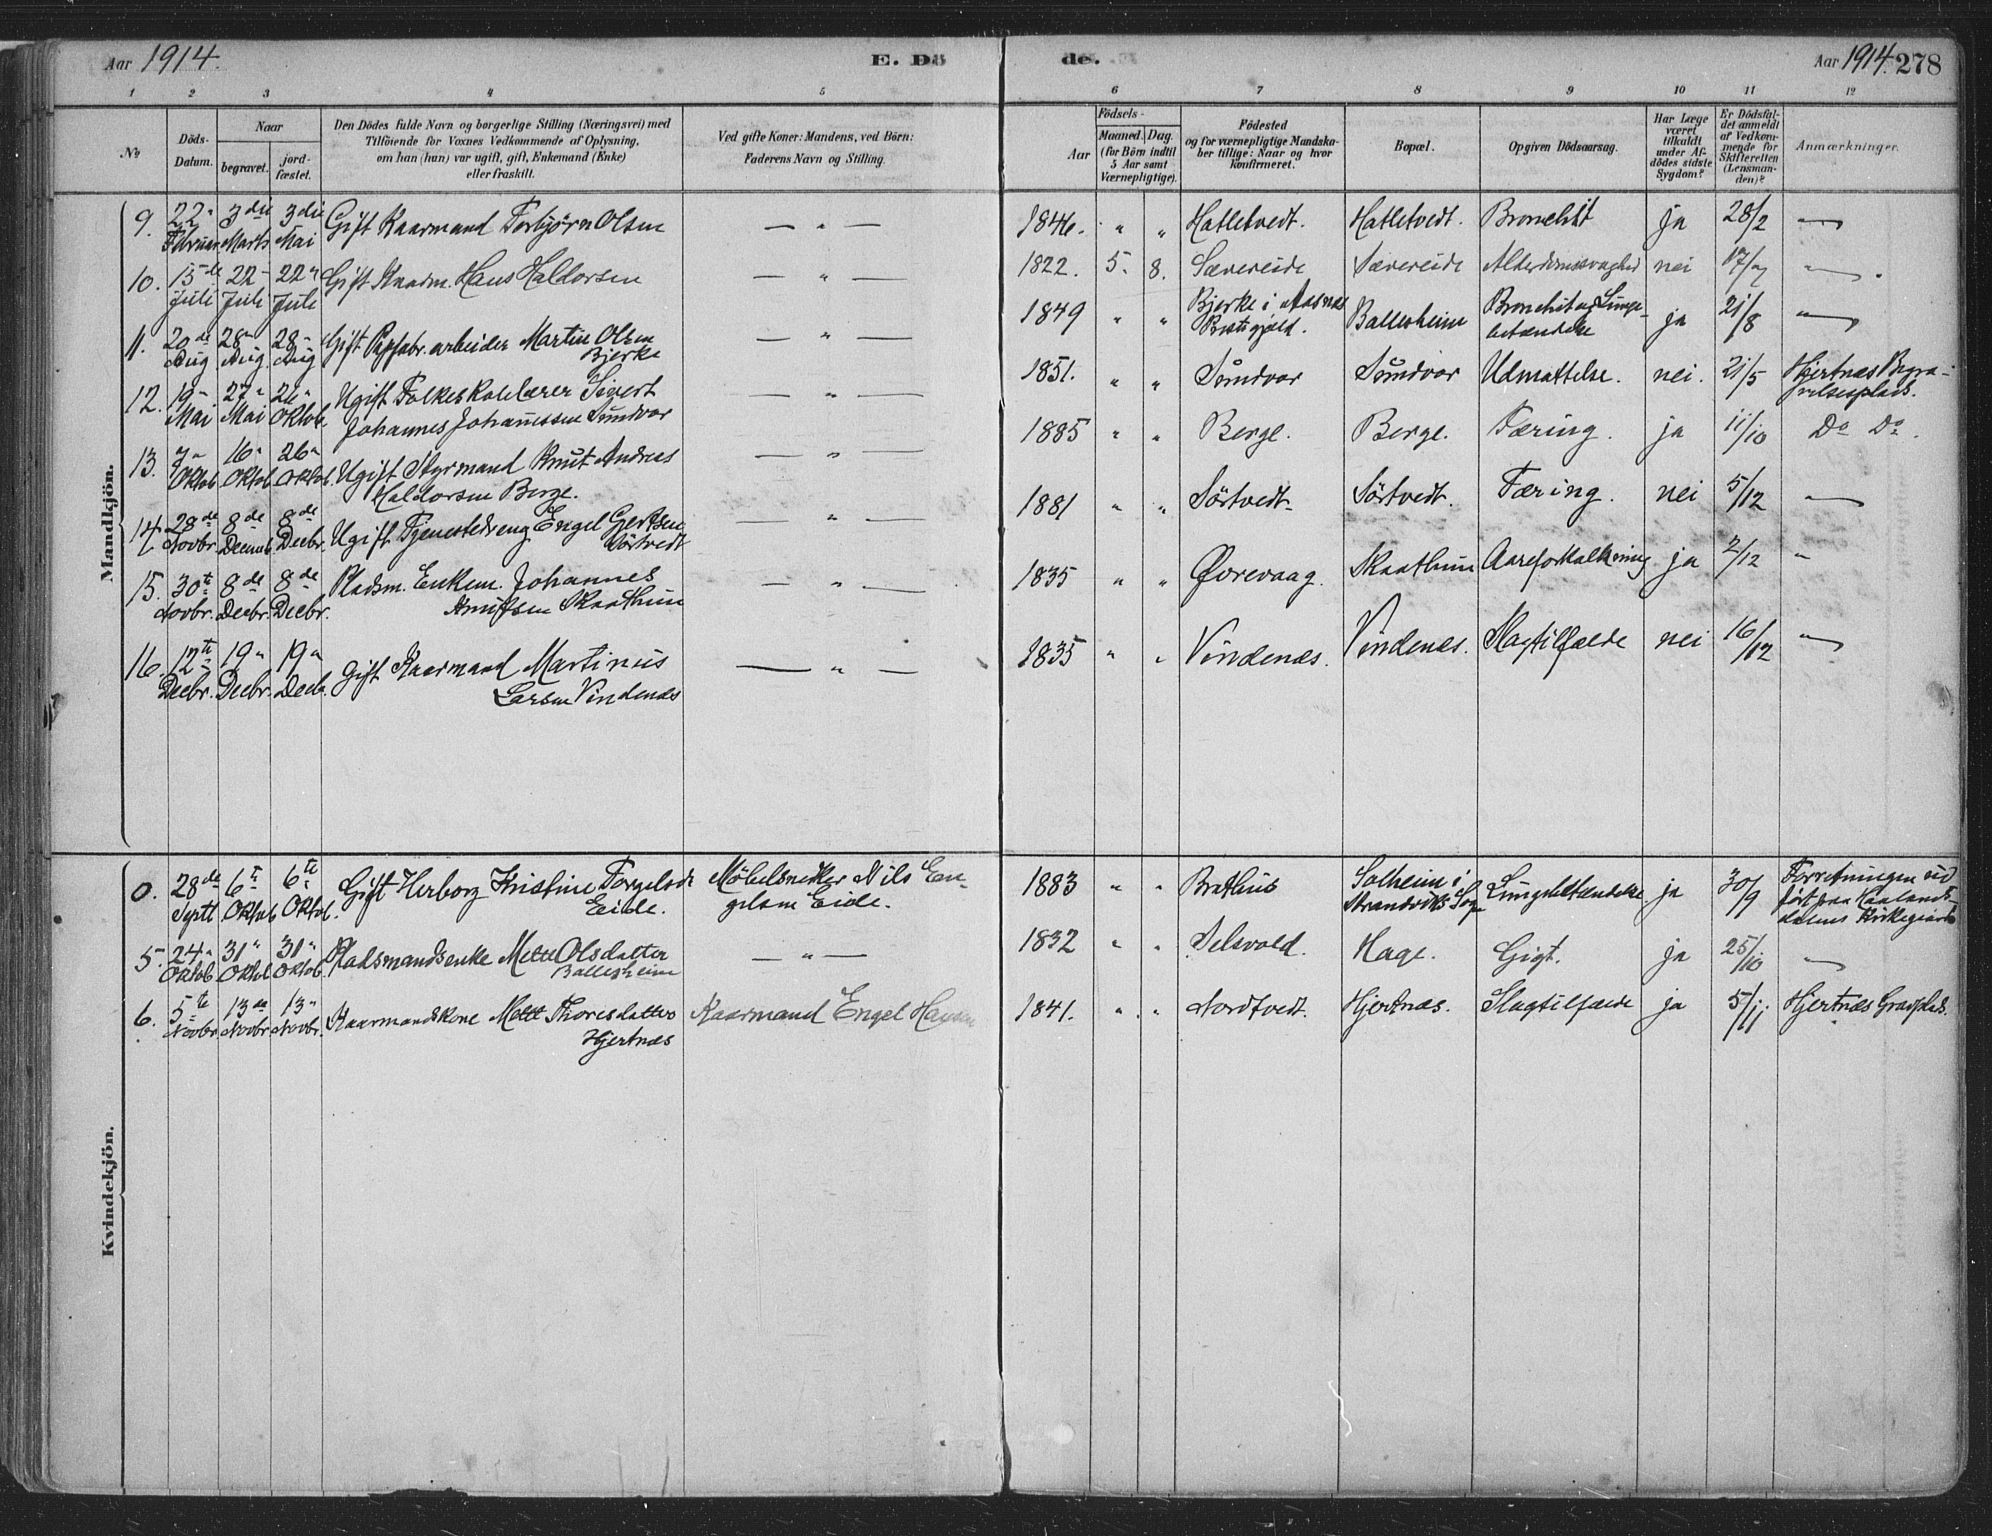 Aar 1914.
E. Dö
de.
Aar 1914. 278
1 2 3 4 5 6 7 8 9 10 11 12
No
Döds-
Datum.
Naar
begravet.
jord-
fæstet.
Den Dödes fulde Navn og borgerlige Stilling (Næringsvei) med
Tilföiende for Voxnes Vedkommende af Oplysning,
om han (hun) var ugift, gift, Enkemand (Enke)
eller fraskilt.
Ved gifte Koner: Mandens, ved Börn:
Faderens Navn og Stilling.
Födsels-
Aar
Maaned. Dag.
(for Börn indtil
5 Aar samt
Værnepligtige).
Födested
og for værnepligtige Mandska-
ber tillige: Naar og hvor
konfirmeret.
Bopæl.
Opgiven Dödsaarsag.
Har Læge
været
tilkaldt
under Af-
dödes sidste
Sygdom?
Er Dödsfal-
det anmeldt
af Vedkom-
mende for
Skifteretten
(Lensman-
den)?
Anmærkninger.
Mandkjön.
9. 22 Februar 3die Marts 3die Mai Gift Kaarmand Torbjörn Olsen — " — 1846. " " Hatletvedt. Hatletvedt. Bronchit ja 28/2 —"—
10. 15de Juli 22 Juli 22 Juli Gift Kaarm. Hans Haldorsen — " — 1822. 5. 8. Sævereide Sævereide Alderdomssvaghed nei 17/7 —"—
11. 20de Aug 28 Aug 28 Aug Gift Papfabr. arbeider Martin Olsen
Bjerke — " — 1849 " " Bjerke i Aasnes
Prestegjeld. Ballesheim Bronchit og Lunge-
betændelse ja 21/8 —"—
12. 19 Mai 27 Mai 26 Oktob. Ugift Folkeskolelærer Sivert
Johannes Johannessen Sundvor — " — 1851. " " Sundvor Sundvor Udmattelse. nei. 21/5 Hjertnæs Begra-
velsesplads.
13. 7 Oktob 16 Oktob. 26 Oktob. Ugift Styrmand Knut Andreas
Haldorsen Berge. — " — 1885 " " Berge. Berge. Tæring. ja 11/10 Do Do.
14. 28de Novbr. 8de Decemb 8de Decbr. Ugift Tjenestedreng Engel Gertsen
Sörtvedt — " — 1881 " " Sörtvedt. Sörtvedt. Tæring. nei 5/12 —"—
15. 30te Novbr. 8de Decbr. 8de Decbr. Pladsm. Enkem. Johannes
Knutsen Skaathun — " — 1835 " " Øvrevaag. Skaathun Aareforkalkning ja 2/12 "
16. 12te Decbr. 19 Decbr. 19 Decb. Gift Kaarmand Martinus
Larsen Vindenæs — " — 1835 " " Vindenæs. Vindenæs. Slagtilfælde nei 16/12 —"—
Kvindekjön.
0. 28de Septb 6te Oktob 6te Oktob. Gift Herborg Kristine Torgelsdr
Eide. Möbelsnekker Nils En-
gelsen Eide. 1883 " " Brathus Solheim i
Strandviks Sogn Lungebetændelse ja 30/9 Forretningen ud
fört paa Kaalands-
dalens Kirkegaard
5. 24 Oktob 31 Oktob 31 Oktob. Pladsmandsenke Mette Olsdatter
Ballesheim — " — 1832 " " Selsvold. Hage. Gigt. ja 25/10 —"—
6. 5te Novbr 13de Novbr 13 Novbr. Kaarmandskone Mette Thoresdatter
Hjertnæs Kaarmand Engel Hansen 1841. " " Nordtvedt. Hjertnæs. Slagtilfælde ja 5/11 Hjertnæs Gravplads.